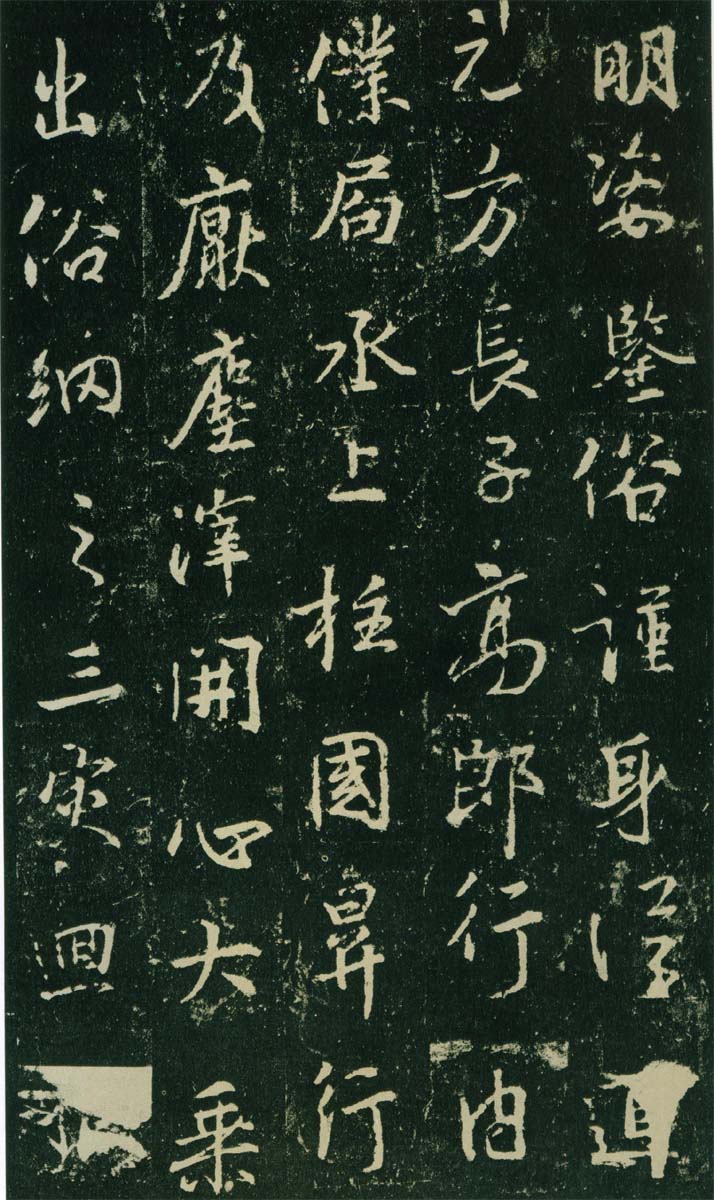 明姿鑒俗謹身
元方長子高郎行內
僕局丞上柱國昇行
及厭塵滓開心大乘
出俗納之三灾迴